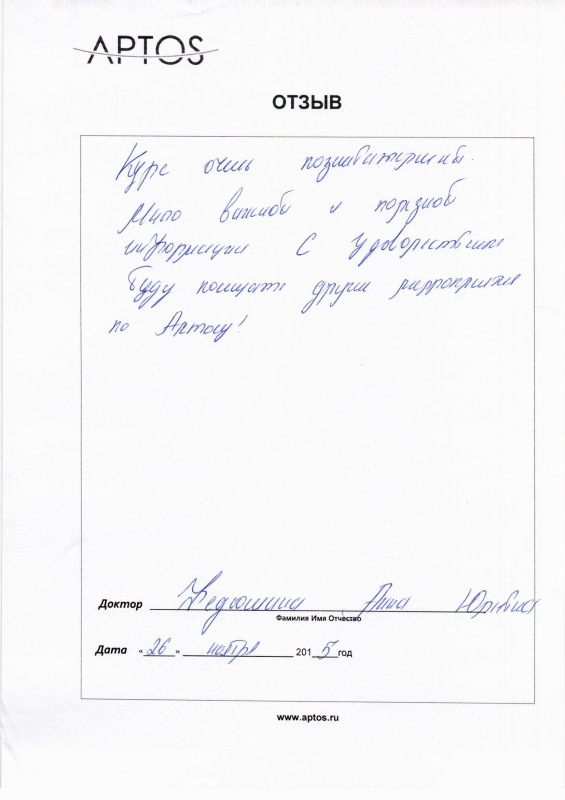 APTOS
ОТЗЫВ
Курс очень познавательный.
Много важной и полезной
информации. С удовольствием
буду посещать другие мероприятия
по Аптосу!
Доктор Юрьевна
Фамилия Имя Отчество
Дата «26» ноября 2015 год
www.aptos.ru